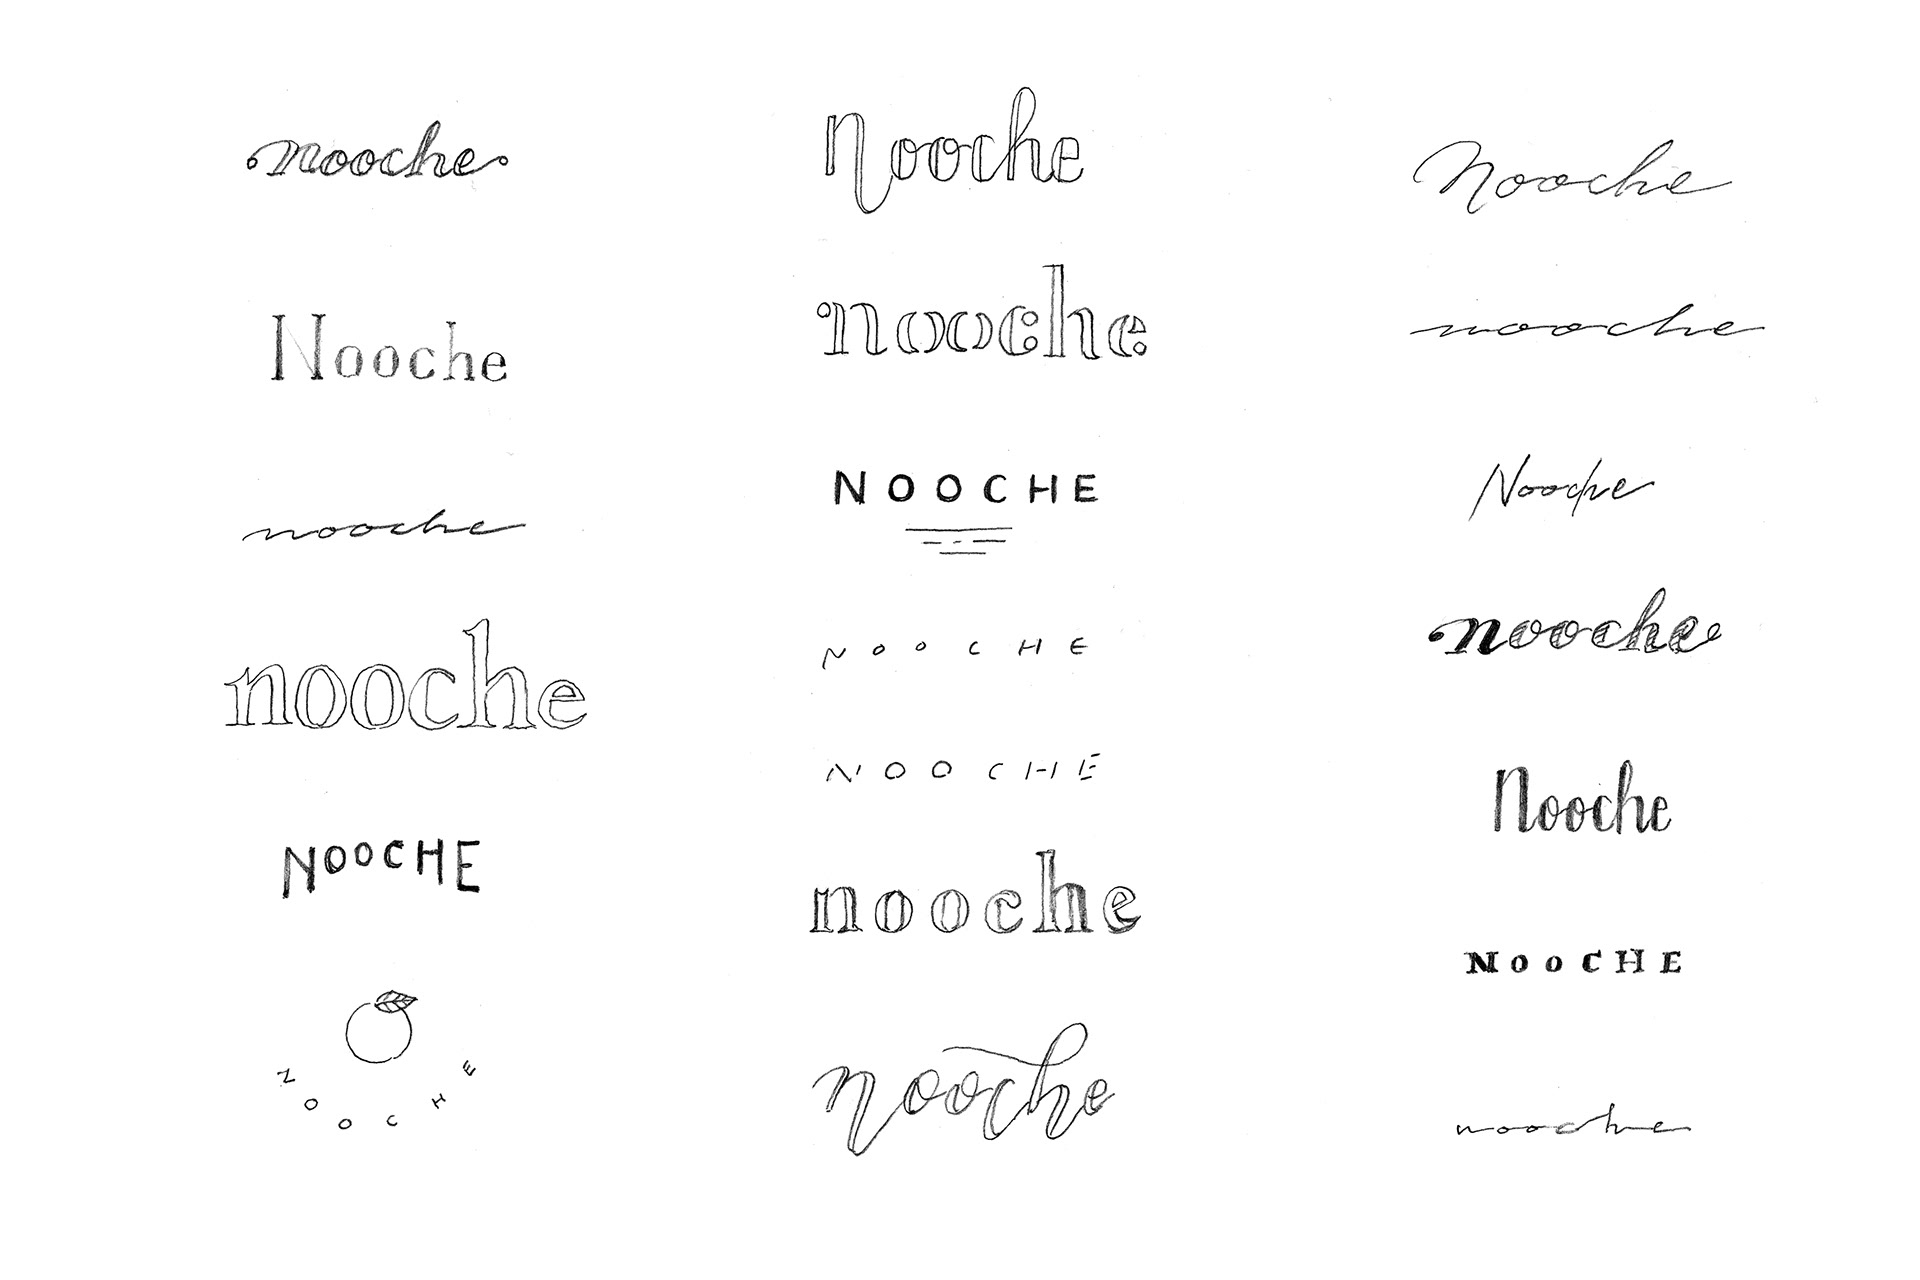 nooche
Nooche
nooche
nooche
NOOCHE
NOOCHE
nooche
nooche
NOOCHE
NOOCHE
NOOCHE
nooche
nooche
Nooche
nooche
Nooche
nooche
Nooche
NOOCHE
nooche